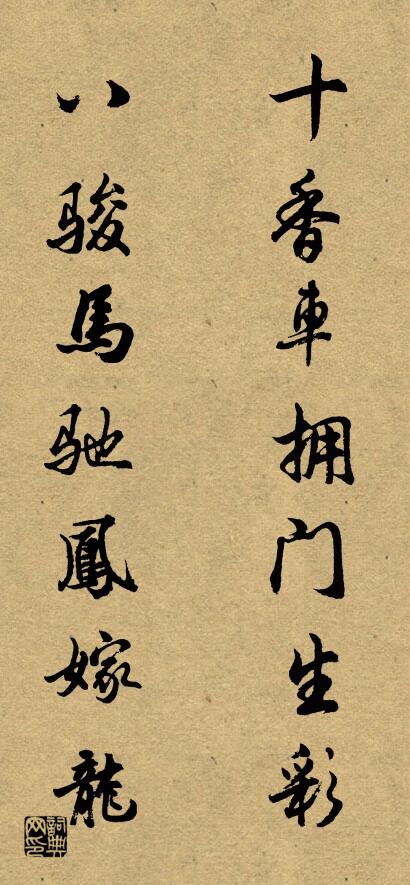 十香車拥门生彩
八骏馬驰鳳嫁龍
詞典网印